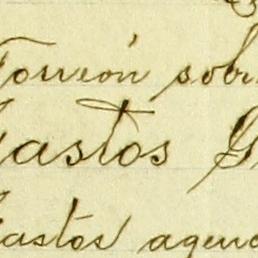 Torreón sobr
Gastos G
Gastos agenc